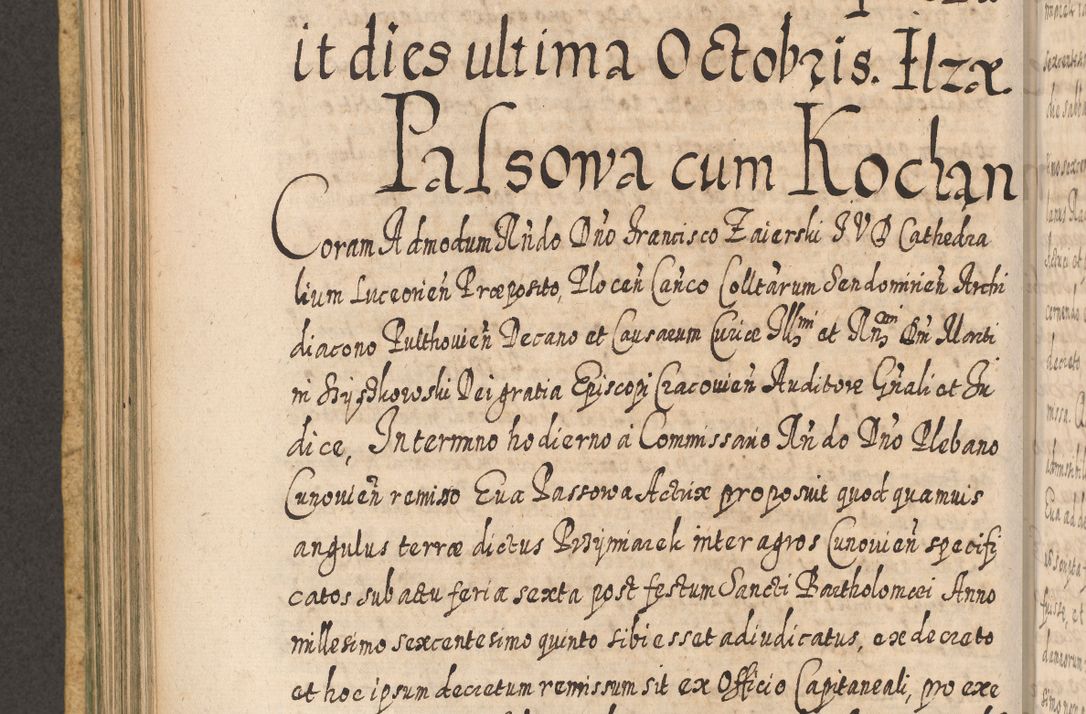 it dies ultima Octobris. Ilzæ.
Passowa cum Kochan
Coram Admodum Rńdo Dńo Francisco Zaierski JVD Cathedra
lium Luceorień Præposito, Ploceń Cańco Colltarum Sendomirień Archi
diacono Pulthovień Decano et Causarum Curiæ Illmi et Rńmi Dńi Marti
ni Szyszkowski Dei gratia Episcopi Cracovień Auditore Gńali et Ju
dice, In termino hodierno a Commissario Rńdo Dńo Plebano
Cunovień remisso Eva Passowa Actrix proposuit quod quamvis
angulus terræ dictus Przymiarek inter agros Cunovień specifi
catos sub actu feria sexta post festum Sancti Bartholomei Anno
millesimo sexcentesimo quinto sibi esset adiudicatus, ex decreto
et hoc ipsum decretum remissum sit ex Officio Capitaneali, pro exe